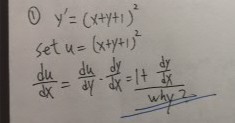 ① y' = (x+y+1)²
set u = (x+y+1)²
du/dx = du/dy · dy/dx = 1 + dy/dx
why?